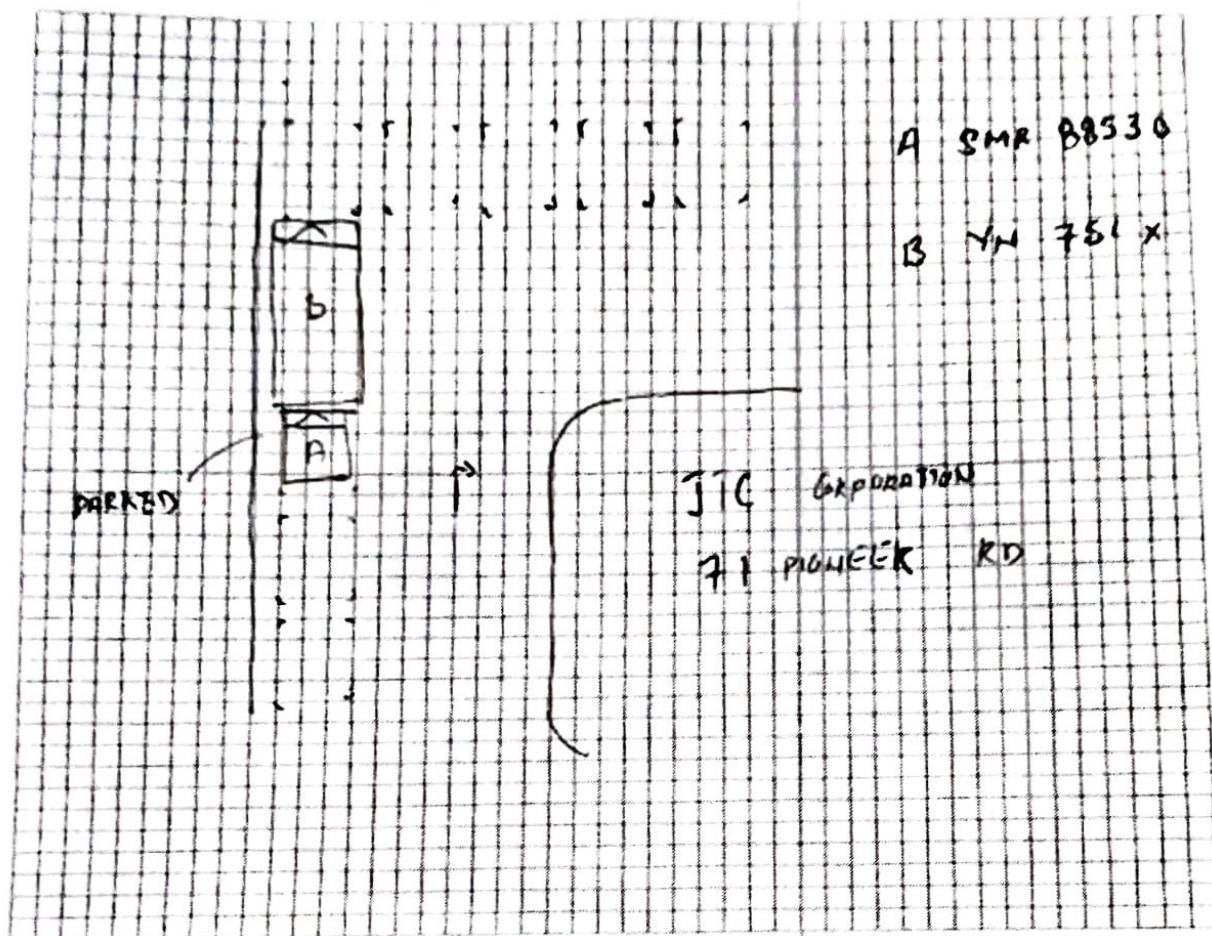 A SMR 8853D
B YN 751 X
B
A
PARKED
JTC CORPORATION
71 PIONEER RD